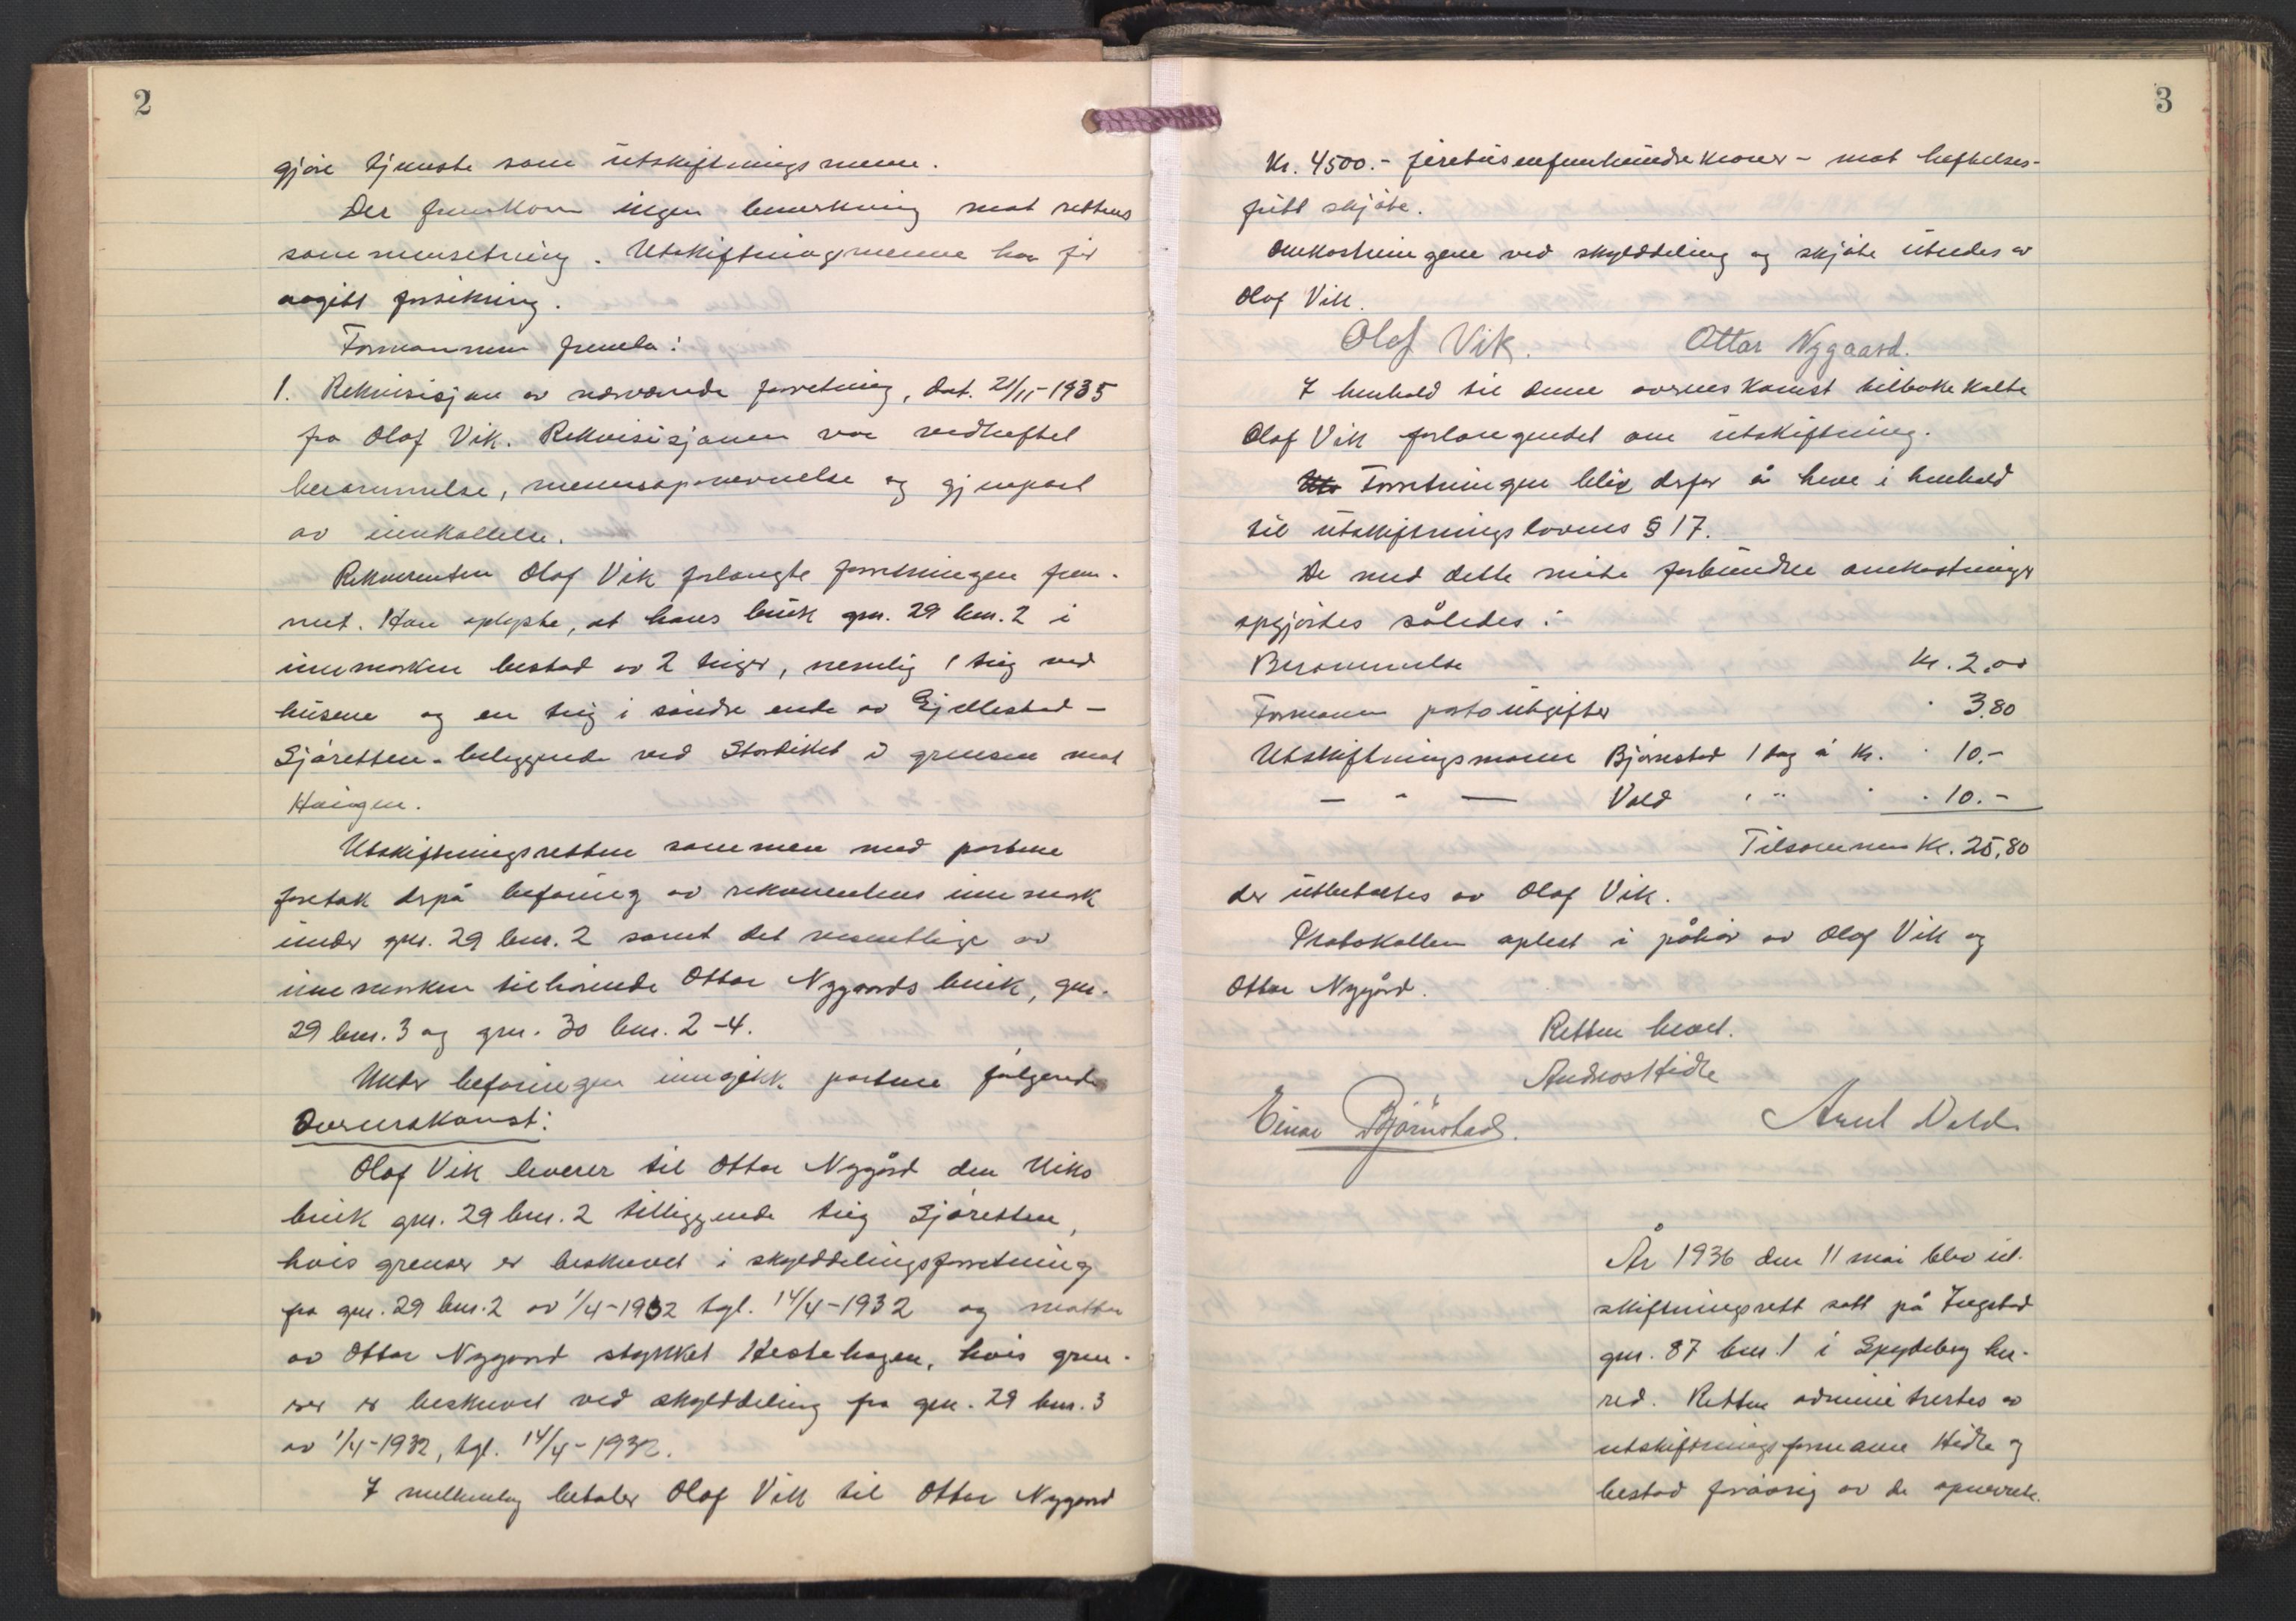 2
gjøre tjeneste som utskiftningsmenn.
Der fremkom ingen bemerkning mot rettens
sammensetning. Utskiftningsmennene har før
avgitt forsikring.
Formannen fremla:
1. Rekvisisjon av nærværende forretning, dat. 21/11-1935
fra Olaf Vik. Rekvisisjonen var vedheftet
berammelse, mennsopnevnelse og gjenpart
av innkallelse.
Rekvirenten Olaf Vik forlangte forretningen frem-
met. Han oplyste, at hans bruk gnr. 29 bnr. 2 i
innmarken bestod av 2 teiger, nemlig 1 teig ved
husene og en teig i søndre ende av Gjellestad-
Sjøretten - beliggende ved Stordiket i grensen mot
Haugen.
Utskiftningsretten sammen med partene
foretok derpå befaring av rekvirentens innmark
under gnr. 29 bnr. 2 samt det vesentlige av
innmarken tilhørende Ottar Nygaards bruk, gnr.
29 bnr. 3 og gnr. 30 bnr. 2-4.
Under befaringen inngikk partene følgende
Overenskomst:
Olaf Vik leverer til Ottar Nygård den Viks
bruk gnr. 29 bnr. 2 tilliggende teig Sjøretten,
hvis grenser er beskrevet i skylddelingsforretning
fra gnr. 29 bnr. 2 av 1/4-1932 tgl. 14/4-1932 og mottar
av Ottar Nygaard stykket Hestehagen, hvis gren-
ser er beskrevet ved skylddeling fra gnr. 29 bnr. 3
av 1/4-1932, tgl. 14/4-1932.
I mellemlag betaler Olaf Vik til Ottar Nygaard
3
Kr. 4500.- firetusenfemhundre kroner - mot heftelses-
fritt skjøte.
Omkostningene ved skylddeling og skjøte utredes av
Olaf Vik.
Olaf Vik. Ottar Nygaard.
I henhold til denne overenskomst tilbakekalte
Olaf Vik forlangendet om utskiftning.
Forretningen blir derfor å heve i henhold
til utskiftningslovens § 17.
De med dette møte forbundne omkostninger
opgjørtes således:
Berammelse Kr. 2,00
Formann portoutgifter " 3,80
Utskiftningsmann Bjørnstad 1 dag à Kr. " 10.-
— " — Vold " " " " 10.-
Tilsammen Kr. 25,80
der utbetaltes av Olaf Vik.
Protokollen oplest i påhør av Olaf Vik og
Ottar Nygård.
Retten hevet.
Andreas Hidle
Einar Bjørnstad. Vold
År 1936 den 11 mai blev ut-
skiftningsrett satt på Ingstad
gnr. 87 bnr. 1 i Spydeberg her-
red. Retten administrertes av
utskiftningsformann Hidle og
bestod forøvrig av de opnevnte